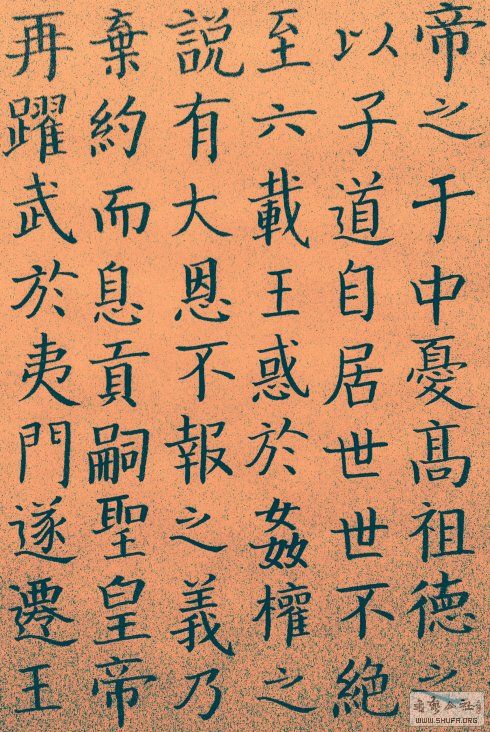 帝之于中憂高祖德之
以子道自居世世不絕
至六載王惑於姦權之
説有大恩不報之義乃
棄約而息貢嗣聖皇帝
再躍武於夷門遂遷王
WWW.SHUFA.ORG